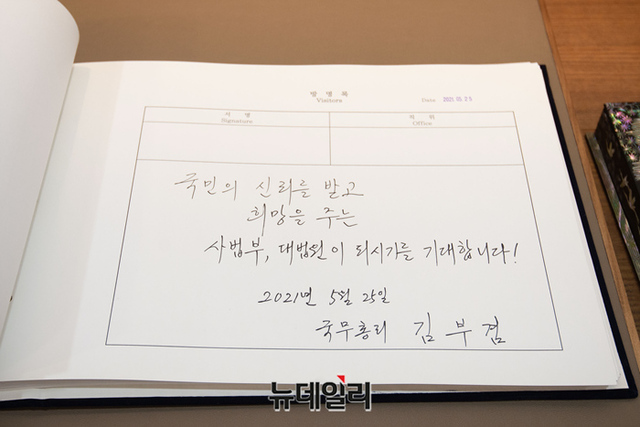 방 명 록
Visitors
Date 2021. 05. 25
서 명
Signature
직 위
Office
국민의 신뢰를 받고
희망을 주는
사법부, 대법원이 되시기를 기대합니다!
2021년 5월 25일
국무총리 김부겸
뉴데일리